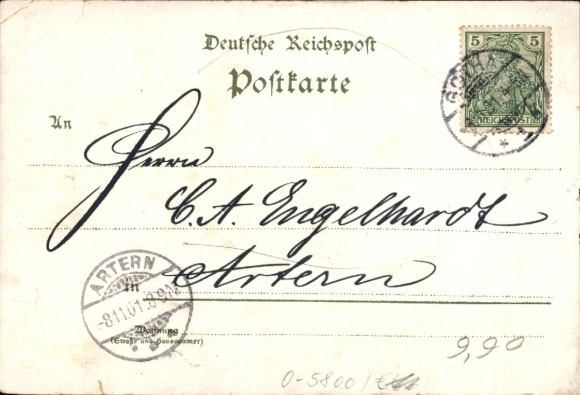 Deutsche Reichspost
Postkarte
5 5
REICHSPOST
GOTHA
An
Herrn
C. A. Engelhardt
Artern
in
ARTERN
-8.11.01.
Wohnung
(Straße und Hausnummer)
9,90
0-5800/